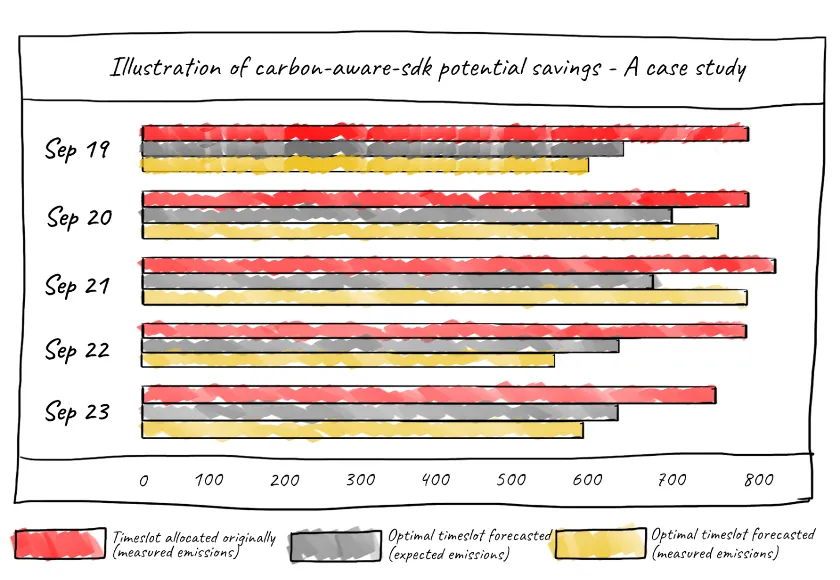 Illustration of carbon-aware-sdk potential savings - A case study
Sep 19
Sep 20
Sep 21
Sep 22
Sep 23
0 100 200 300 400 500 600 700 800
Timeslot allocated originally
(measured emissions)
Optimal timeslot forecasted
(expected emissions)
Optimal timeslot forecasted
(measured emissions)